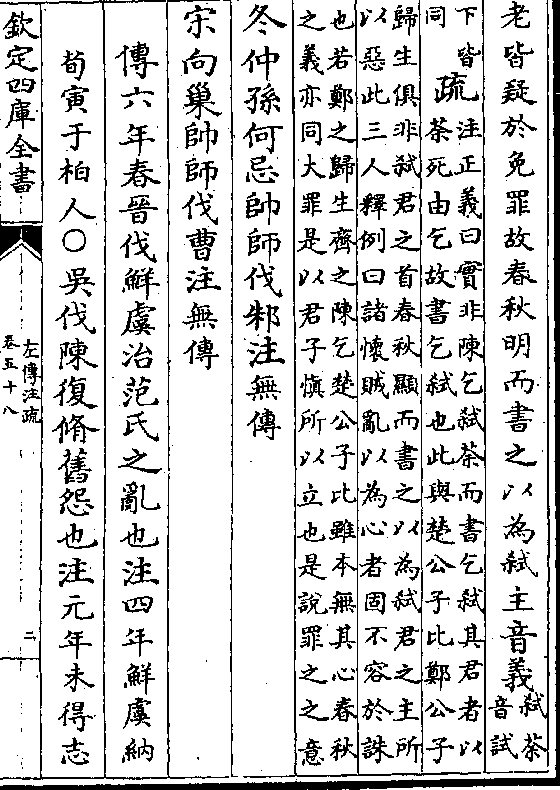 老皆疑於免罪故春秋明而書之以為弑主音義弑荼音試
下皆同疏注正義曰實非陳乞弑荼而書乞弑其君者以
荼死由乞故書乞弑也此與楚公子比鄭公子
歸生俱非弑君之首春秋顯而書之以為弑君之主所
以惡此三人釋例曰諸懷賊亂以為心者固不容於誅
也若鄭之歸生齊之陳乞楚公子比雖本無其心春秋
之義亦同大罪是以君子慎所以立也是說罪之之意
冬仲孫何忌帥師伐邾注無傳
宋向巢帥師伐曹注無傳
傳六年春晉伐鮮虞治范氏之亂也注四年鮮虞納
荀寅于柏人〇吳伐陳復脩舊怨也注元年未得志
欽定四庫全書
左傳注疏
卷五十八
二